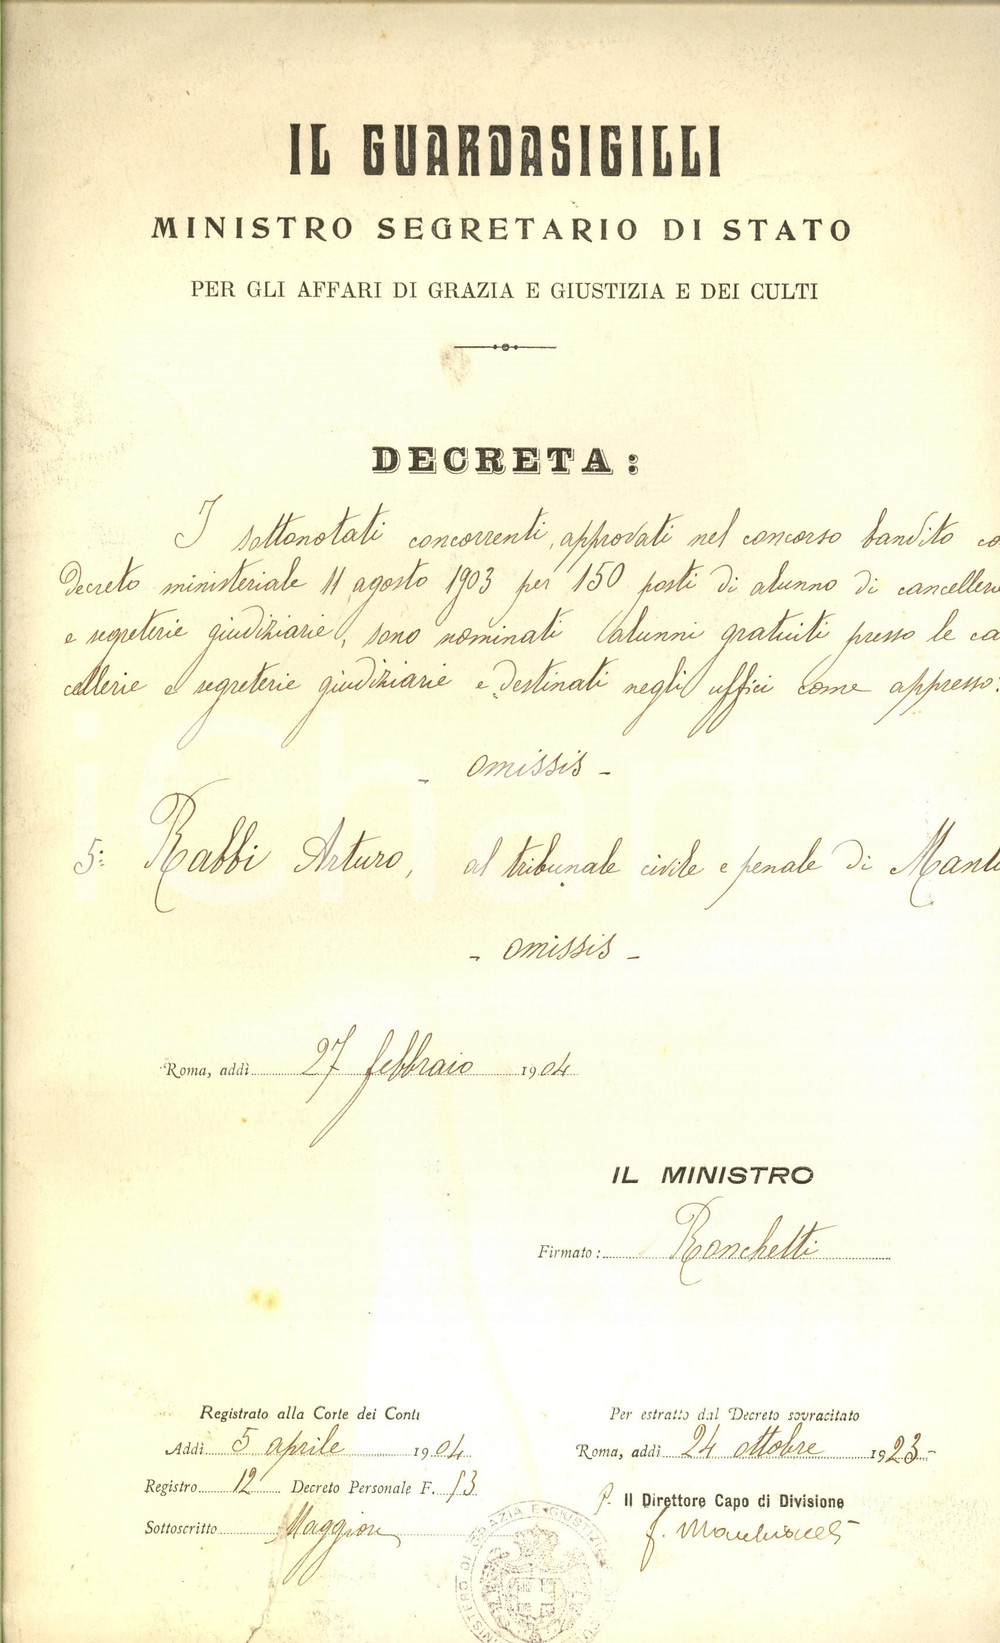 IL GUARDASIGILLI
MINISTRO SEGRETARIO DI STATO
PER GLI AFFARI DI GRAZIA E GIUSTIZIA E DEI CULTI
DECRETA:
I sottonotati concorrenti, approvati nel concorso bandito co
Decreto ministeriale 11 agosto 1903 per 150 posti di alunno di cancelleri
e segreterie giudiziarie, sono nominati alunni gratuiti presso le ca
cellerie e segreterie giudiziarie e destinati negli uffici come appresso:
- omissis -
5: Rabbi Arturo, al tribunale civile e penale di Mant
- omissis -
Roma, addì 27 febbraio 1904
IL MINISTRO
Firmato: Ronchetti
Registrato alla Corte dei Conti
Addì 5 aprile 1904
Registro 12 Decreto Personale F. 53
Sottoscritto Maggiori
Per estratto dal Decreto sovracitato
Roma, addì 24 ottobre 1923-
p. Il Direttore Capo di Divisione
GRAZIA E GIUSTIZIA